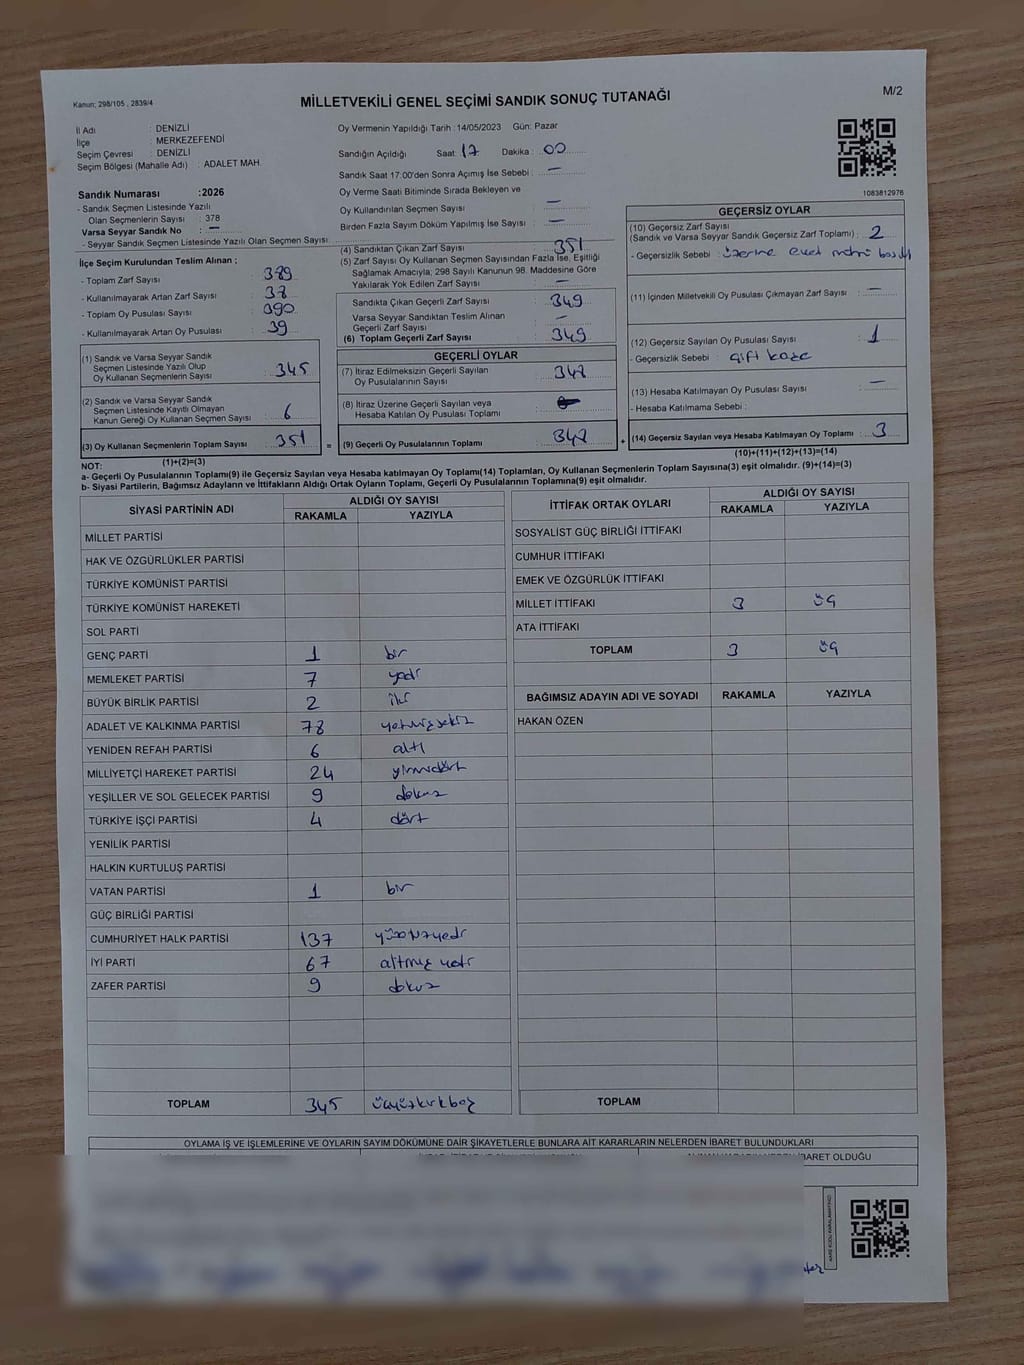 Kanun; 298/105 , 2839/4
MİLLETVEKİLİ GENEL SEÇİMİ SANDIK SONUÇ TUTANAĞI
M/2
İl Adı : DENİZLİ
İlçe : MERKEZEFENDİ
Seçim Çevresi : DENİZLİ
Seçim Bölgesi (Mahalle Adı) : ADALET MAH.
Oy Vermenin Yapıldığı Tarih : 14/05/2023 Gün: Pazar
Sandığın Açıldığı Saat: 17 Dakika : 00
Sandık Saat 17:00'den Sonra Açımış İse Sebebi : —
Oy Verme Saati Bitiminde Sırada Bekleyen ve
Oy Kullandırılan Seçmen Sayısı —
Birden Fazla Sayım Döküm Yapılmış İse Sayısı : —
1083812976
Sandık Numarası :2026
- Sandık Seçmen Listesinde Yazılı
Olan Seçmenlerin Sayısı : 378
Varsa Seyyar Sandık No : —
- Seyyar Sandık Seçmen Listesinde Yazılı Olan Seçmen Sayısı:
İlçe Seçim Kurulundan Teslim Alınan ;
- Toplam Zarf Sayısı : 389
- Kullanılmayarak Artan Zarf Sayısı : 38
- Toplam Oy Pusulası Sayısı : 390
- Kullanılmayarak Artan Oy Pusulası : 39
(1) Sandık ve Varsa Seyyar Sandık
Seçmen Listesinde Yazılı Olup
Oy Kullanan Seçmenlerin Sayısı : 345
(2) Sandık ve Varsa Seyyar Sandık
Seçmen Listesinde Kayıtlı Olmayan
Kanun Gereği Oy Kullanan Seçmen Sayısı : 6
(3) Oy Kullanan Seçmenlerin Toplam Sayısı : 351
(1)+(2)=(3)
(4) Sandıktan Çıkan Zarf Sayısı : 351
(5) Zarf Sayısı Oy Kullanan Seçmen Sayısından Fazla İse, Eşitliği
Sağlamak Amacıyla; 298 Sayılı Kanunun 98. Maddesine Göre
Yakılarak Yok Edilen Zarf Sayısı : —
Sandıkta Çıkan Geçerli Zarf Sayısı : 349
Varsa Seyyar Sandıktan Teslim Alınan
Geçerli Zarf Sayısı : —
(6) Toplam Geçerli Zarf Sayısı : 349
GEÇERLİ OYLAR
(7) İtiraz Edilmeksizin Geçerli Sayılan
Oy Pusulalarının Sayısı : 348
(8) İtiraz Üzerine Geçerli Sayılan veya
Hesaba Katılan Oy Pusulası Toplamı :
= (9) Geçerli Oy Pusulalarının Toplamı : 348
GEÇERSİZ OYLAR
(10) Geçersiz Zarf Sayısı
(Sandık ve Varsa Seyyar Sandık Geçersiz Zarf Toplamı) : 2
- Geçersizlik Sebebi : üzerine evet mührü basılı
(11) İçinden Milletvekili Oy Pusulası Çıkmayan Zarf Sayısı : —
(12) Geçersiz Sayılan Oy Pusulası Sayısı : 1
- Geçersizlik Sebebi : çift kaşe
(13) Hesaba Katılmayan Oy Pusulası Sayısı : —
- Hesaba Katılmama Sebebi :
+ (14) Geçersiz Sayılan veya Hesaba Katılmayan Oy Toplamı : 3
(10)+(11)+(12)+(13)=(14)
NOT:
a- Geçerli Oy Pusulalarının Toplamı(9) ile Geçersiz Sayılan veya Hesaba katılmayan Oy Toplamı(14) Toplamları, Oy Kullanan Seçmenlerin Toplam Sayısına(3) eşit olmalıdır. (9)+(14)=(3)
b- Siyasi Partilerin, Bağımsız Adayların ve İttifakların Aldığı Ortak Oyların Toplamı, Geçerli Oy Pusulalarının Toplamına(9) eşit olmalıdır.
SİYASİ PARTİNİN ADI ALDIĞI OY SAYISI
RAKAMLA YAZIYLA
MİLLET PARTİSİ
HAK VE ÖZGÜRLÜKLER PARTİSİ
TÜRKİYE KOMÜNİST PARTİSİ
TÜRKİYE KOMÜNİST HAREKETİ
SOL PARTİ
GENÇ PARTİ 1 bir
MEMLEKET PARTİSİ 7 yedi
BÜYÜK BİRLİK PARTİSİ 2 iki
ADALET VE KALKINMA PARTİSİ 78 yetmişsekiz
YENİDEN REFAH PARTİSİ 6 altı
MİLLİYETÇİ HAREKET PARTİSİ 24 yirmidört
YEŞİLLER VE SOL GELECEK PARTİSİ 9 dokuz
TÜRKİYE İŞÇİ PARTİSİ 4 dört
YENİLİK PARTİSİ
HALKIN KURTULUŞ PARTİSİ
VATAN PARTİSİ 1 bir
GÜÇ BİRLİĞİ PARTİSİ
CUMHURİYET HALK PARTİSİ 137 yüzotuzyedi
İYİ PARTİ 67 altmış yedi
ZAFER PARTİSİ 9 dokuz
TOPLAM 345 üçyüzkırkbeş
İTTİFAK ORTAK OYLARI ALDIĞI OY SAYISI
RAKAMLA YAZIYLA
SOSYALİST GÜÇ BİRLİĞİ İTTİFAKI
CUMHUR İTTİFAKI
EMEK VE ÖZGÜRLÜK İTTİFAKI
MİLLET İTTİFAKI 3 üç
ATA İTTİFAKI
TOPLAM 3 üç
BAĞIMSIZ ADAYIN ADI VE SOYADI RAKAMLA YAZIYLA
HAKAN ÖZEN
TOPLAM
OYLAMA İŞ VE İŞLEMLERİNE VE OYLARIN SAYIM DÖKÜMÜNE DAİR ŞİKAYETLERLE BUNLARA AİT KARARLARIN NELERDEN İBARET BULUNDUKLARI
İBARET OLDUĞU